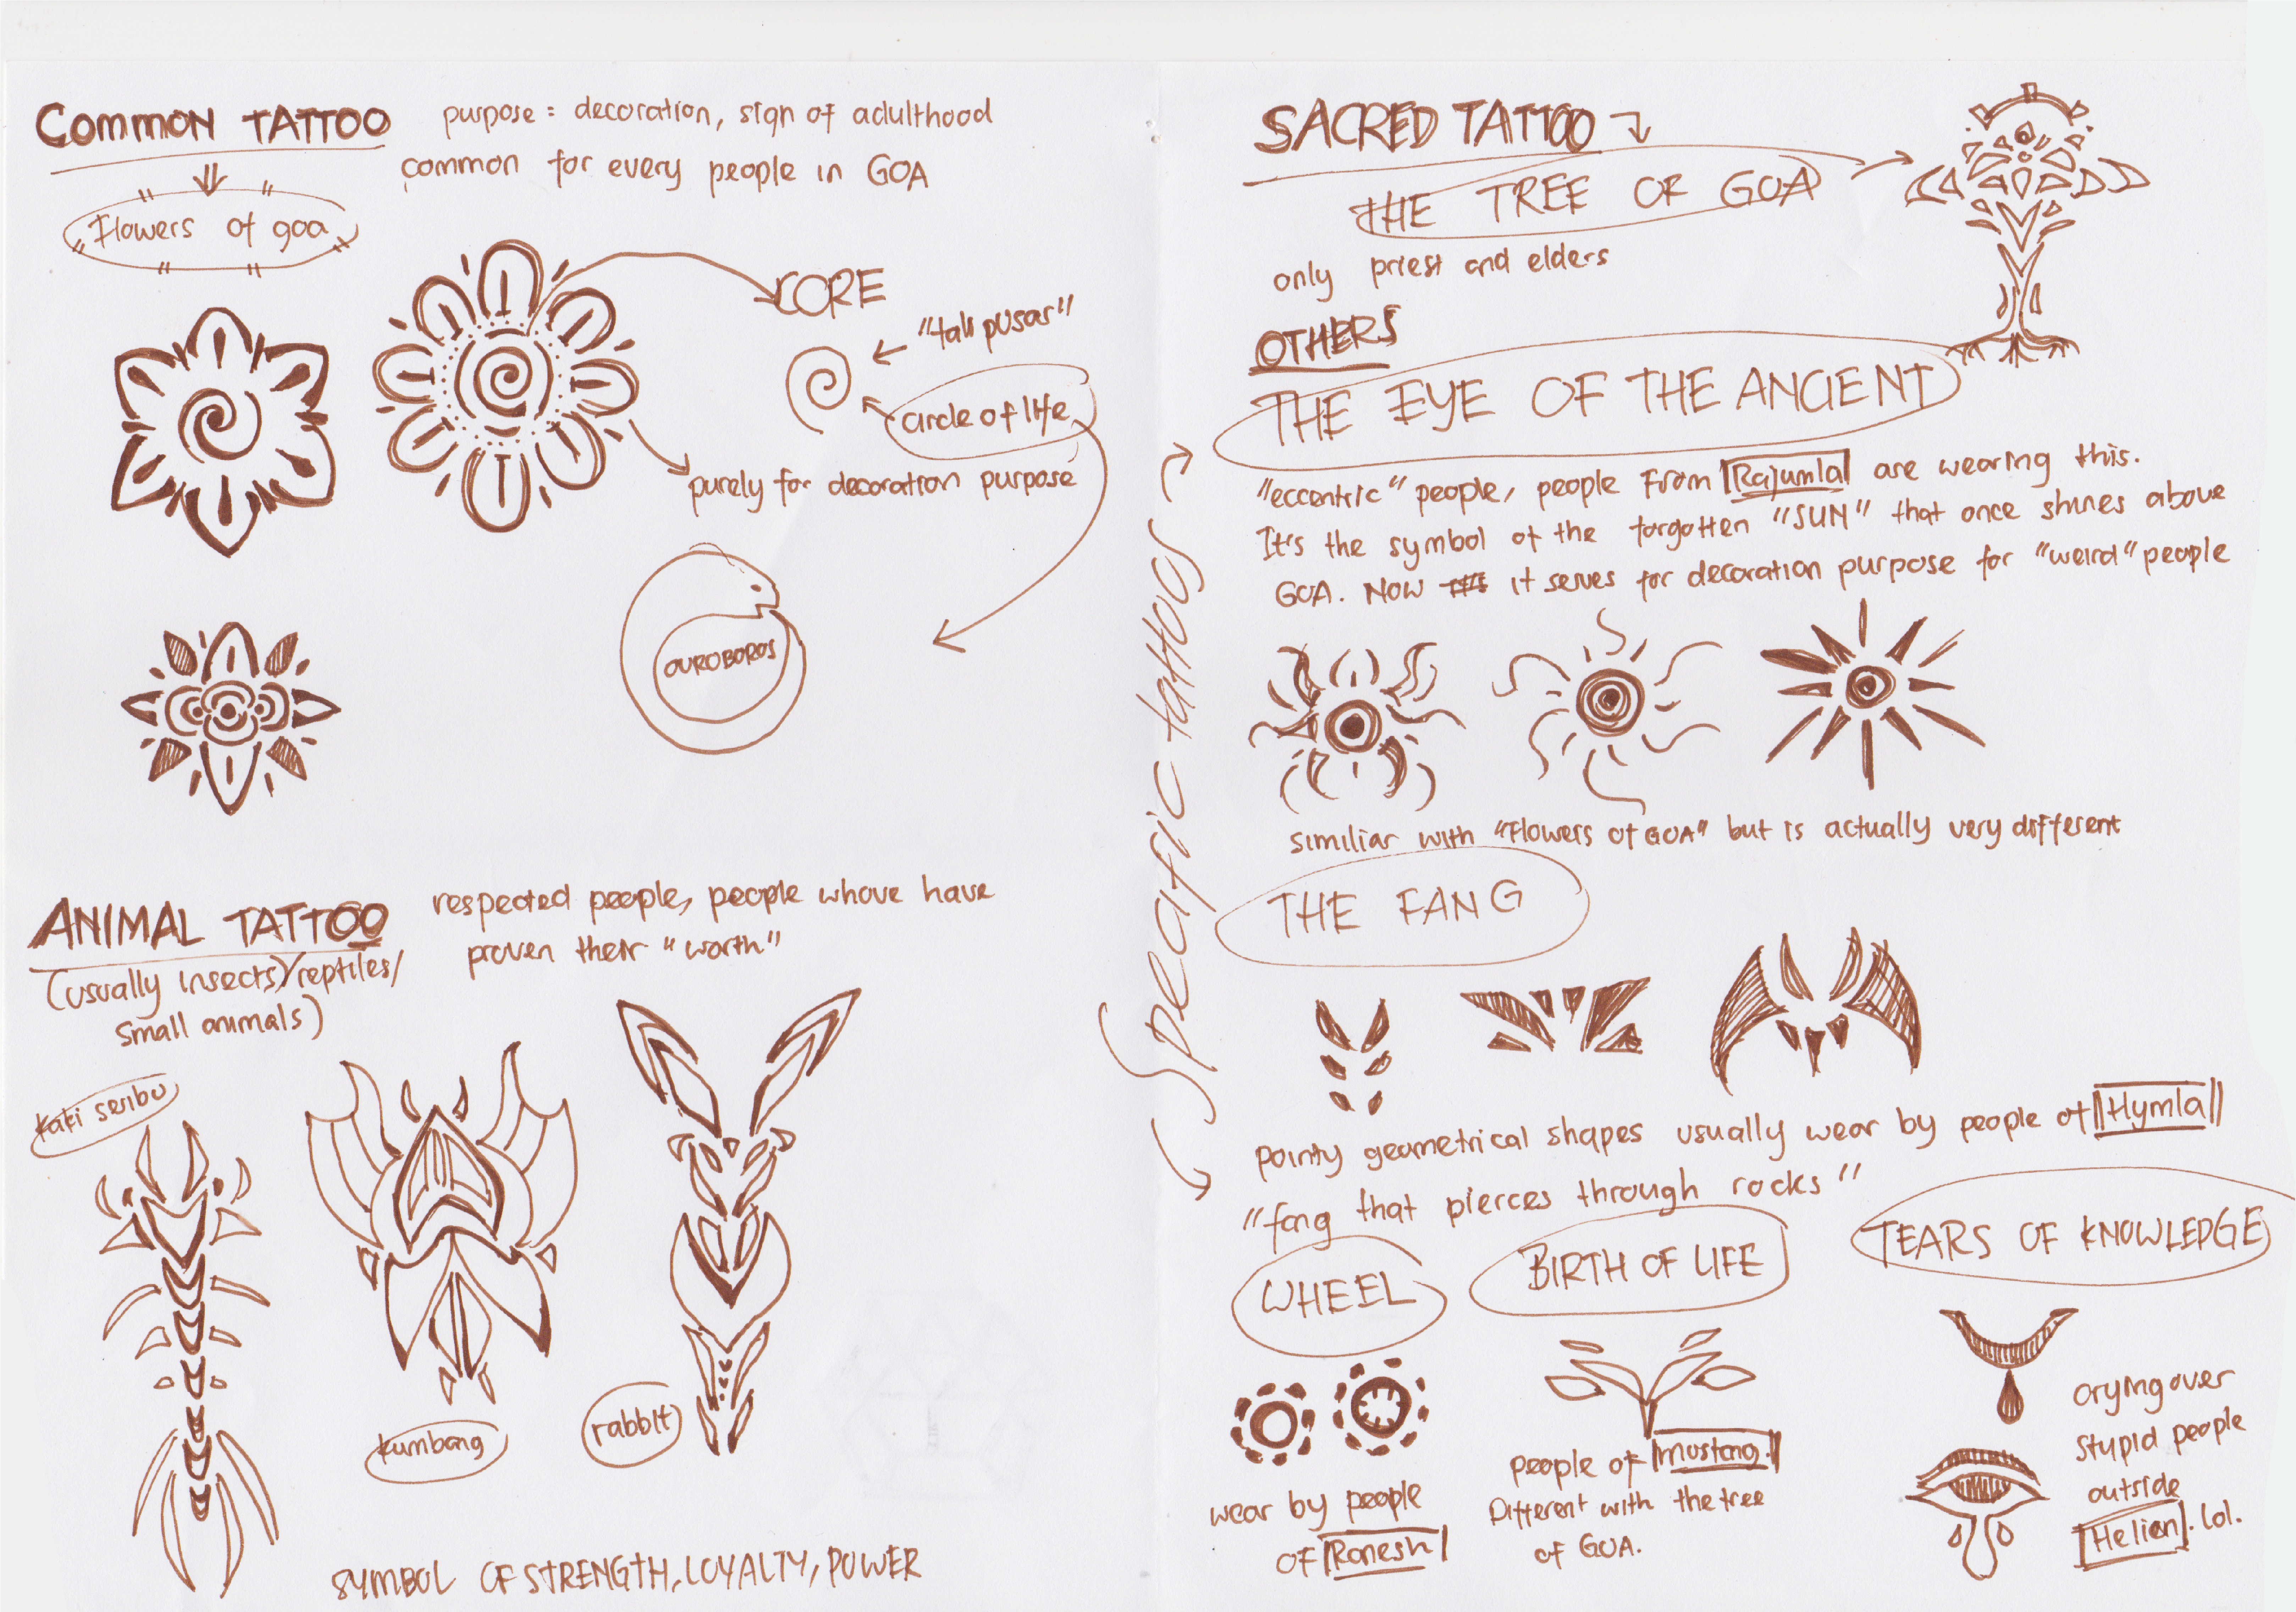 COMMON TATTOO
purpose = decoration, sign of adulthood
common for every people in GOA
"Flowers of goa"
CORE
"tali pusar"
circle of life
purely for decoration purpose
OUROBOROS
ANIMAL TATTOO
(usually insects/reptiles/
small animals)
respected people, people whove have
proven their "worth"
kaki seribu
kumbang
rabbit
SYMBOL OF STRENGTH, LOYALTY, POWER
Specific tattoos
SACRED TATTOO
THE TREE OF GOA
only priest and elders
OTHERS
THE EYE OF THE ANCIENT
"eccentric" people, people from Rajumla are wearing this.
It's the symbol of the forgotten "SUN" that once shines above
GOA. Now it serves for decoration purpose for "weird" people
similiar with "Flowers of GOA" but is actually very different
THE FANG
pointy geometrical shapes usually wear by people of Hymla
"fang that pierces through rocks"
WHEEL
wear by people
of Ranesh
BIRTH OF LIFE
people of Mustang.
Different with the tree
of GOA.
TEARS OF KNOWLEDGE
crying over
stupid people
outside
Helian. lol.